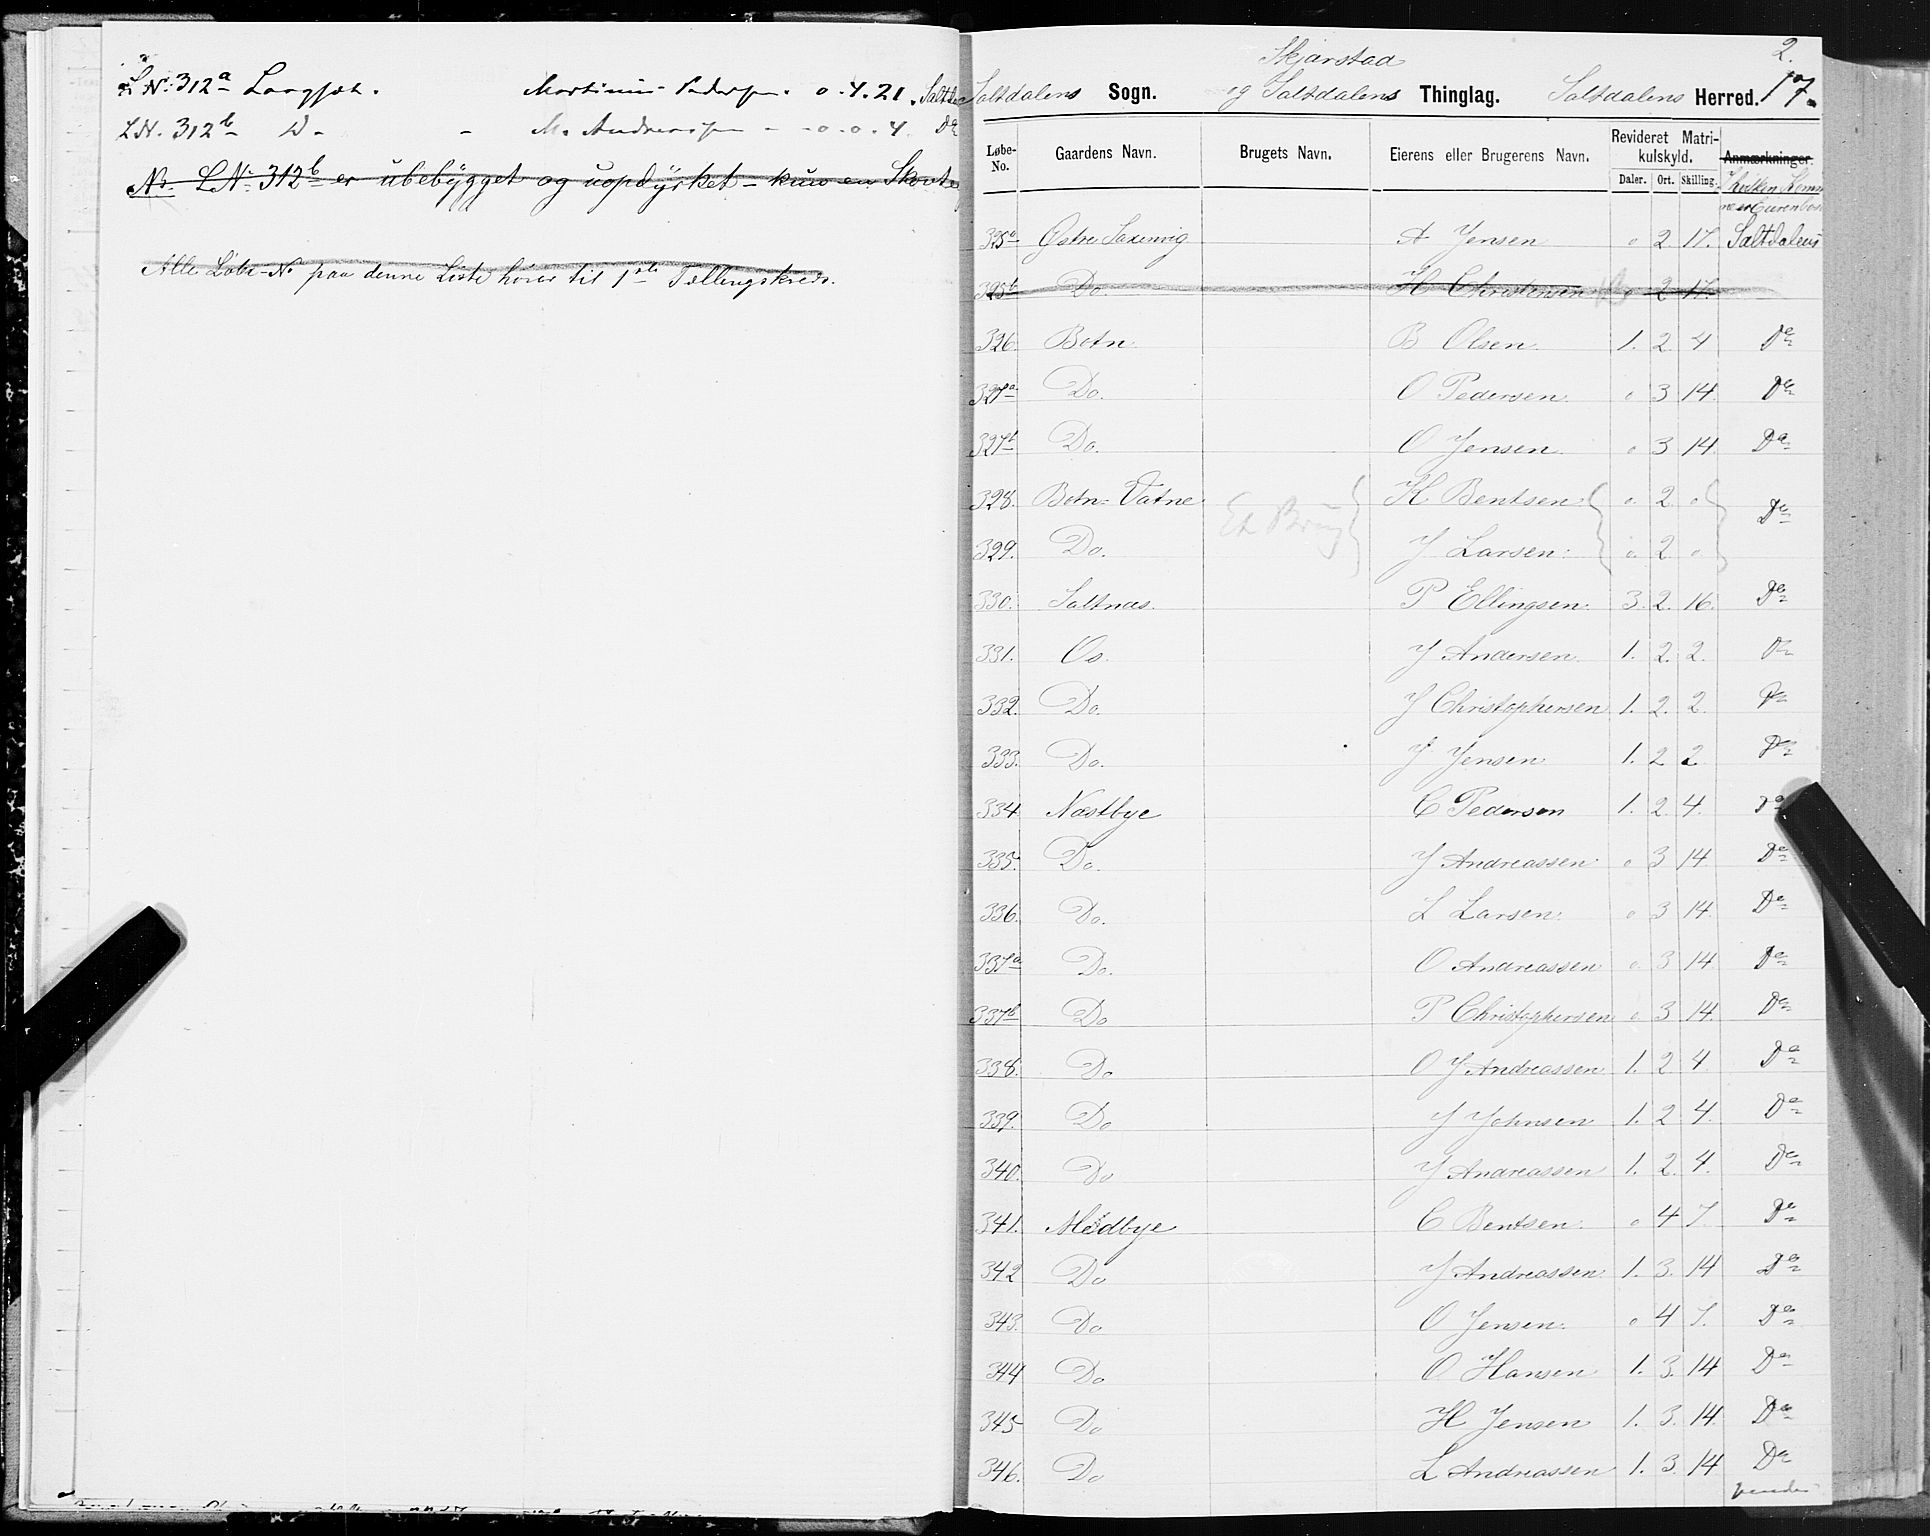 L N: 312a Langset. Martinus Pedersen. 0. 4. 21. Saltd
L N. 312b D - - M. Andreassen - - 0. 0. 4 Do
No L N: 312b er ubebygget og uopdyrket - kun en
Alle Løbe-No paa denne Liste hører til 1ste Tællingskreds.
2.
Skjærstad
Saltdalens Sogn. og Saltdalens Thinglag. Saltdalens Herred. 17.
Løbe-No. Gaardens Navn. Brugets Navn. Eierens eller Brugerens Navn. Revideret Matrikulskyld. Anmærkninger.
Daler. Ort. Skilling.
325a Østre Saxenvig A Jensen 0 2 17. Saltdalens
325b Do. H Christensen 0 2 17.
326. Botn. B Olsen. 1. 2. 4 Do
327a Do. O Pedersen. 0 3 14. Do
327b Do. O Jensen. 0 3 14. Do
328. Botn-Vatne H Bentsen 0. 2. 0 Do
Et Brug
329. Do. J Larsen. 0. 2 0
330. Saltnæs. P Ellingsen. 3. 2. 16. Do
331. Os. J Andersen. 1. 2. 2. Do
332. Do. J Christophersen 1. 2. 2. Do
333. Do. J Jensen 1. 2 2 Do
334 Næstbye C Pedersen 1. 2. 4. Do
335. Do. J Andreassen. 0 3 14 Do
336. Do. L Larsen. 0 3 14. Do
337a Do. O Andreassen 0. 3 14. Do
337b Do P Christophersen 0 3 14. Do
338. Do O J Andreassen 1. 2 4. Do
339. Do J Johnsen 1. 2 4. Do
340. Do J Andreassen 1. 2. 4. Do
341. Medbye C Bentsen. 0 4 7. Do
342 Do J Andreassen. 1. 3. 14 Do
343. Do O Jensen. 0 4 7. Do
344 Do O Hansen 1. 3. 14 Do
345 Do H Jensen 1. 3. 14. Do
346. Do L Andreassen 1. 3. 14 Do
vendes